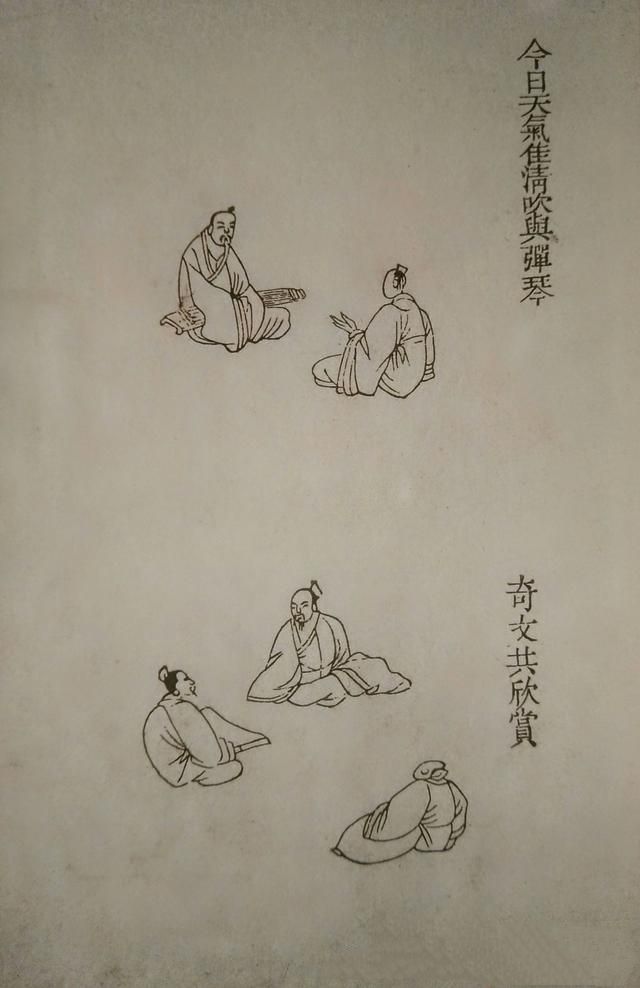 今日天氣佳清吹與彈琴
奇文共欣賞